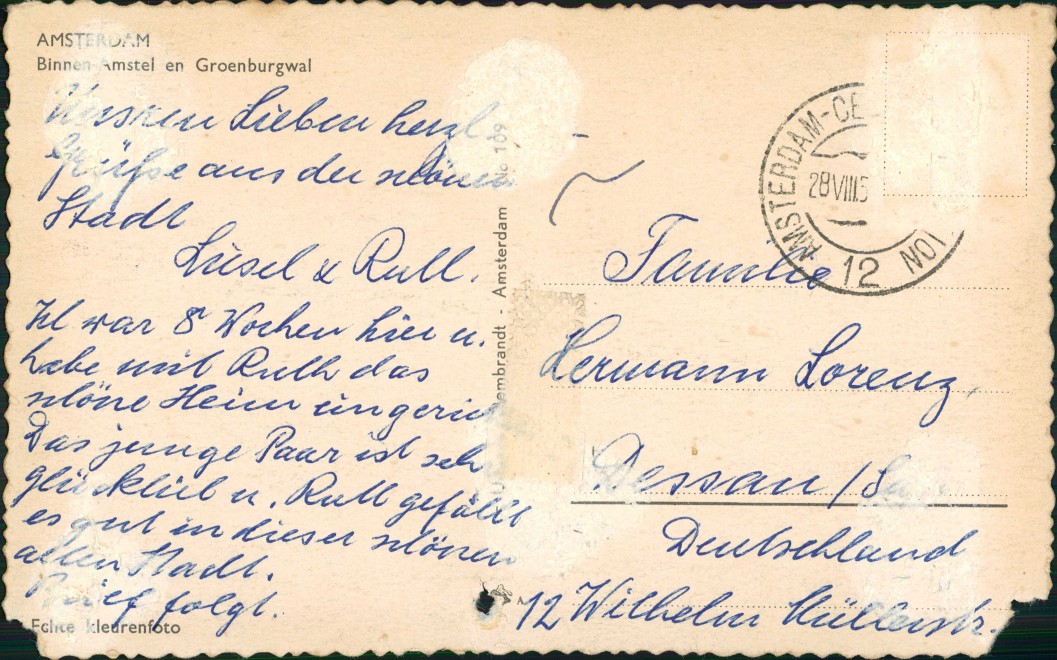 AMSTERDAM
Binnen-Amstel en Groenburgwal
Unseren Lieben herzl.
Grüße aus der schönen
Stadt
Liesel & Ruth.
Ich war 8 Wochen hier u.
habe mit Ruth das
schöne Heim eingericht
Das junge Paar ist sehr
glücklich u. Ruth gefällt
es gut in dieser schönen
alten Stadt.
Brief folgt.
Echte kleurenfoto
embrandt - Amsterdam
No 109
AMSTERDAM-CE
28 VIII 5
12
Familie
Hermann Lorenz,
Dessau /
Deutschland
12 Wilhelm Müllerstr.